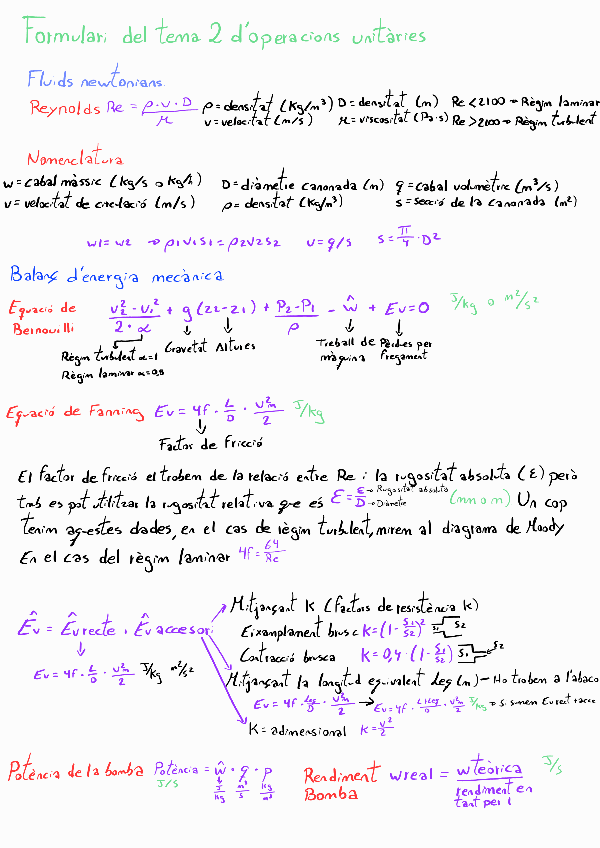 Formulari del tema 2 d'operacions unitàries
Fluids newtonians.
Reynolds Re = ρ·v·D / μ ρ = densitat (Kg/m³) D = densitat (m) Re < 2100 → Règim laminar
v = velocitat (m/s) μ = viscositat (Pa·s) Re > 2100 → Règim turbulent
Nomenclatura
w = cabal màssic (kg/s o Kg/h) D = diàmetre canonada (m) q = cabal volumètric (m³/s)
v = velocitat de circulació (m/s) ρ = densitat (Kg/m³) s = secció de la canonada (m²)
w1 = w2 → ρ1V1S1 = ρ2V2S2 v = q/s S = π/4 · D²
Balanç d'energia mecànica
Equació de Bernouilli v₂² - v₁² / 2·α + g (z2 - z1) + P2 - P1 / ρ - ŵ + Êv = 0 J/kg o m²/s²
Gravetat Altures Treball de màquina Pèrdues per fregament
Règim turbulent α = 1
Règim laminar α = 0,5
Equació de Fanning Êv = 4f · L/D · v²m/2 J/kg
Factor de fricció
El factor de fricció el trobem de la relació entre Re i la rugositat absoluta (ε) però
tmb es pot utilitzar la rugositat relativa que es ε = ε/D → Rugositat absoluta → Diàmetre (mn o m) Un cop
tenim aquestes dades, en el cas de règim turbulent, mirem al diagrama de Moody
En el cas del règim laminar 4f = 64/Re
Mitjançant K (factors de resistència K)
Êv = Êv recte + Êv accesori
Eixamplament brusc K = (1 - S1/S2)² S1 S2
Contracció brusca K = 0,4 · (1 - S1/S2) S1 S2
Êv = 4f · L/D · v²m/2 J/kg m²/s²
Mitjançant la longitud equivalent Leq (m) - Ho trobem a l'abaco
Êv = 4f · Leq/D · v²m/2 → Êv = 4f · L+Leq/D · v²m/2 J/kg → Si sumem Ev rect + acce
K = adimensional K = v²/2
Potència de la bomba Potència = ŵ · q · ρ
J/s J/kg m³/s kg/m³
Rendiment Bomba w real = w teòrica / rendiment en tant per 1 J/s